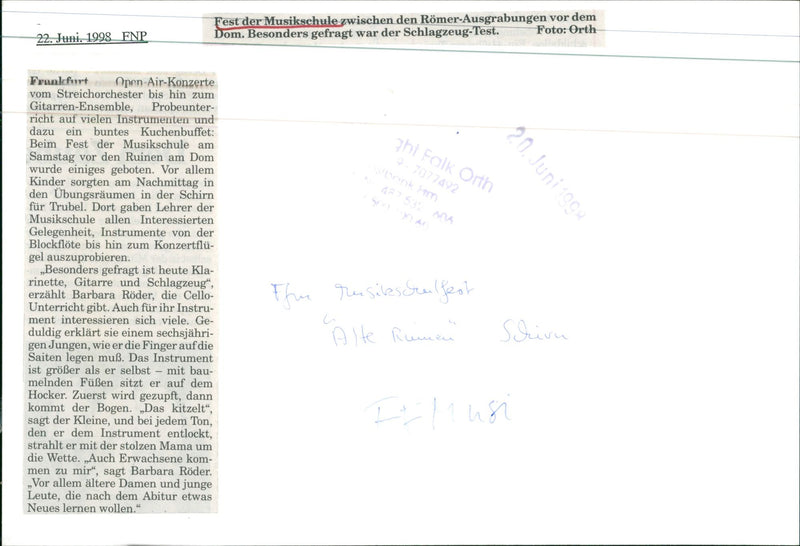 22. Juni. 1998 FNP
Fest der Musikschule zwischen den Römer-Ausgrabungen vor dem
Dom. Besonders gefragt war der Schlagzeug-Test. Foto: Orth
Frankfurt Open-Air-Konzerte
vom Streichorchester bis hin zum
Gitarren-Ensemble, Probeunter-
richt auf vielen Instrumenten und
dazu ein buntes Kuchenbuffet:
Beim Fest der Musikschule am
Samstag vor den Ruinen am Dom
wurde einiges geboten. Vor allem
Kinder sorgten am Nachmittag in
den Übungsräumen in der Schirn
für Trubel. Dort gaben Lehrer der
Musikschule allen Interessierten
Gelegenheit, Instrumente von der
Blockflöte bis hin zum Konzertflü-
gel auszuprobieren.
„Besonders gefragt ist heute Kla-
rinette, Gitarre und Schlagzeug“,
erzählt Barbara Röder, die Cello-
Unterricht gibt. Auch für ihr Instru-
ment interessieren sich viele. Ge-
duldig erklärt sie einem sechsjähri-
gen Jungen, wie er die Finger auf die
Saiten legen muß. Das Instrument
ist größer als er selbst – mit bau-
melnden Füßen sitzt er auf dem
Hocker. Zuerst wird gezupft, dann
kommt der Bogen. „Das kitzelt“,
sagt der Kleine, und bei jedem Ton,
den er dem Instrument entlockt,
strahlt er mit der stolzen Mama um
die Wette. „Auch Erwachsene kom-
men zu mir“, sagt Barbara Röder.
„Vor allem ältere Damen und junge
Leute, die nach dem Abitur etwas
Neues lernen wollen.“
Falk Orth
20. Juni 1998
Ffm Musikschulfest
"Alte Ruinen" Schirn